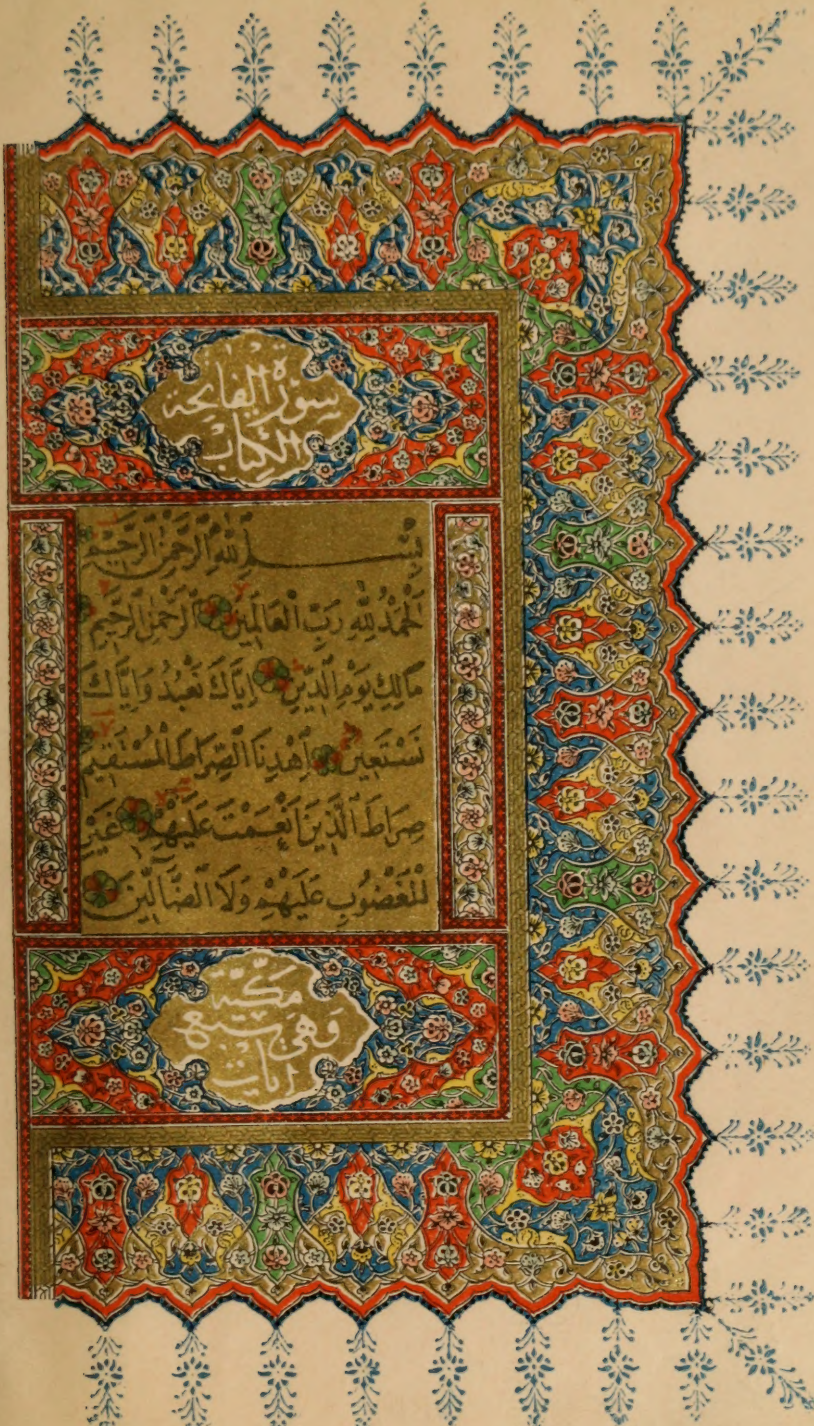 سُورَةُ الْفَاتِحَة
الْكِتَابْ
بِسْــــمِ اللّٰهِ الرَّحْمٰنِ الرَّحِيْمِ
اَلْحَمْدُ لِلّٰهِ رَبِّ الْعَالَمِيْنَ اَلرَّحْمٰنِ الرَّحِيْمِ
مَالِكِ يَوْمِ الدِّيْنِ اِيَّاكَ نَعْبُدُ وَاِيَّاكَ
نَسْتَعِيْنُ اِهْدِنَا الصِّرَاطَ الْمُسْتَقِيْمَ
صِرَاطَ الَّذِيْنَ اَنْعَمْتَ عَلَيْهِمْ غَيْرِ
الْمَغْضُوْبِ عَلَيْهِمْ وَلَا الضَّآلِّيْنَ
مَكِّيَّة
وَهِيَ سَبْعُ
اٰيَاتْ